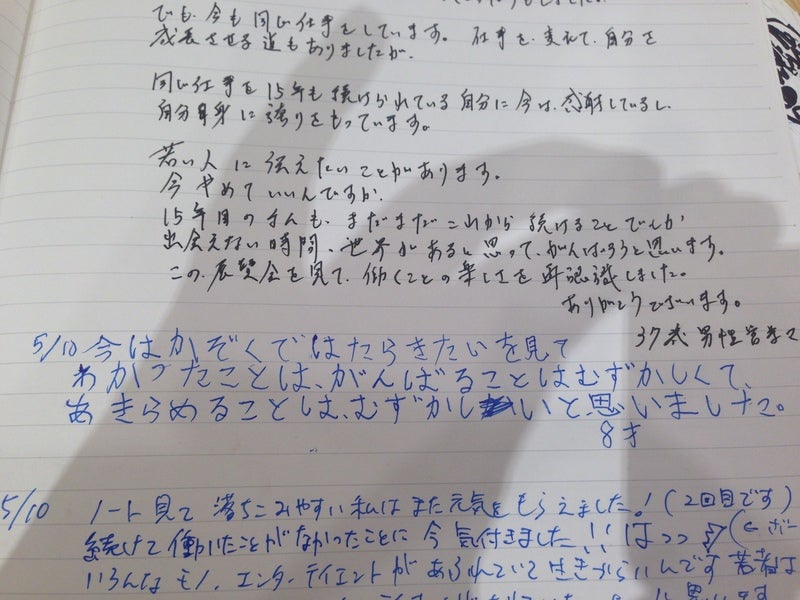 でも、今も同じ仕事をしています。仕事を、変えて、自分を
成長させる道もありましたが、
同じ仕事を15年も続けられている自分に今は、感謝しているし、
自分自身に誇りをもっています。
若い人に伝えたいことがあります。
今やめていいんですか。
15年目の私も、まだまだこれから続けることでしか
出会えない時間、世界があると思って、がんばろうと思います。
この展覧会を見て、働くことの楽しさを再認識しました。
ありがとうございます。
37歳 男性
5/10 今はかぞくではたらきたいを見て
わかったことは、がんばることはむずかしくて、
あきらめることは、むずかしいと思いました。
8才
5/10 ノート見て落ちこみやすい私はまた元気をもらえました!(2回目です)
続けて働いたことがなかったことに今気付きました!!はっっ
いろんなモノ、エンターテイエントがあふれていて生きづらいんです若者は